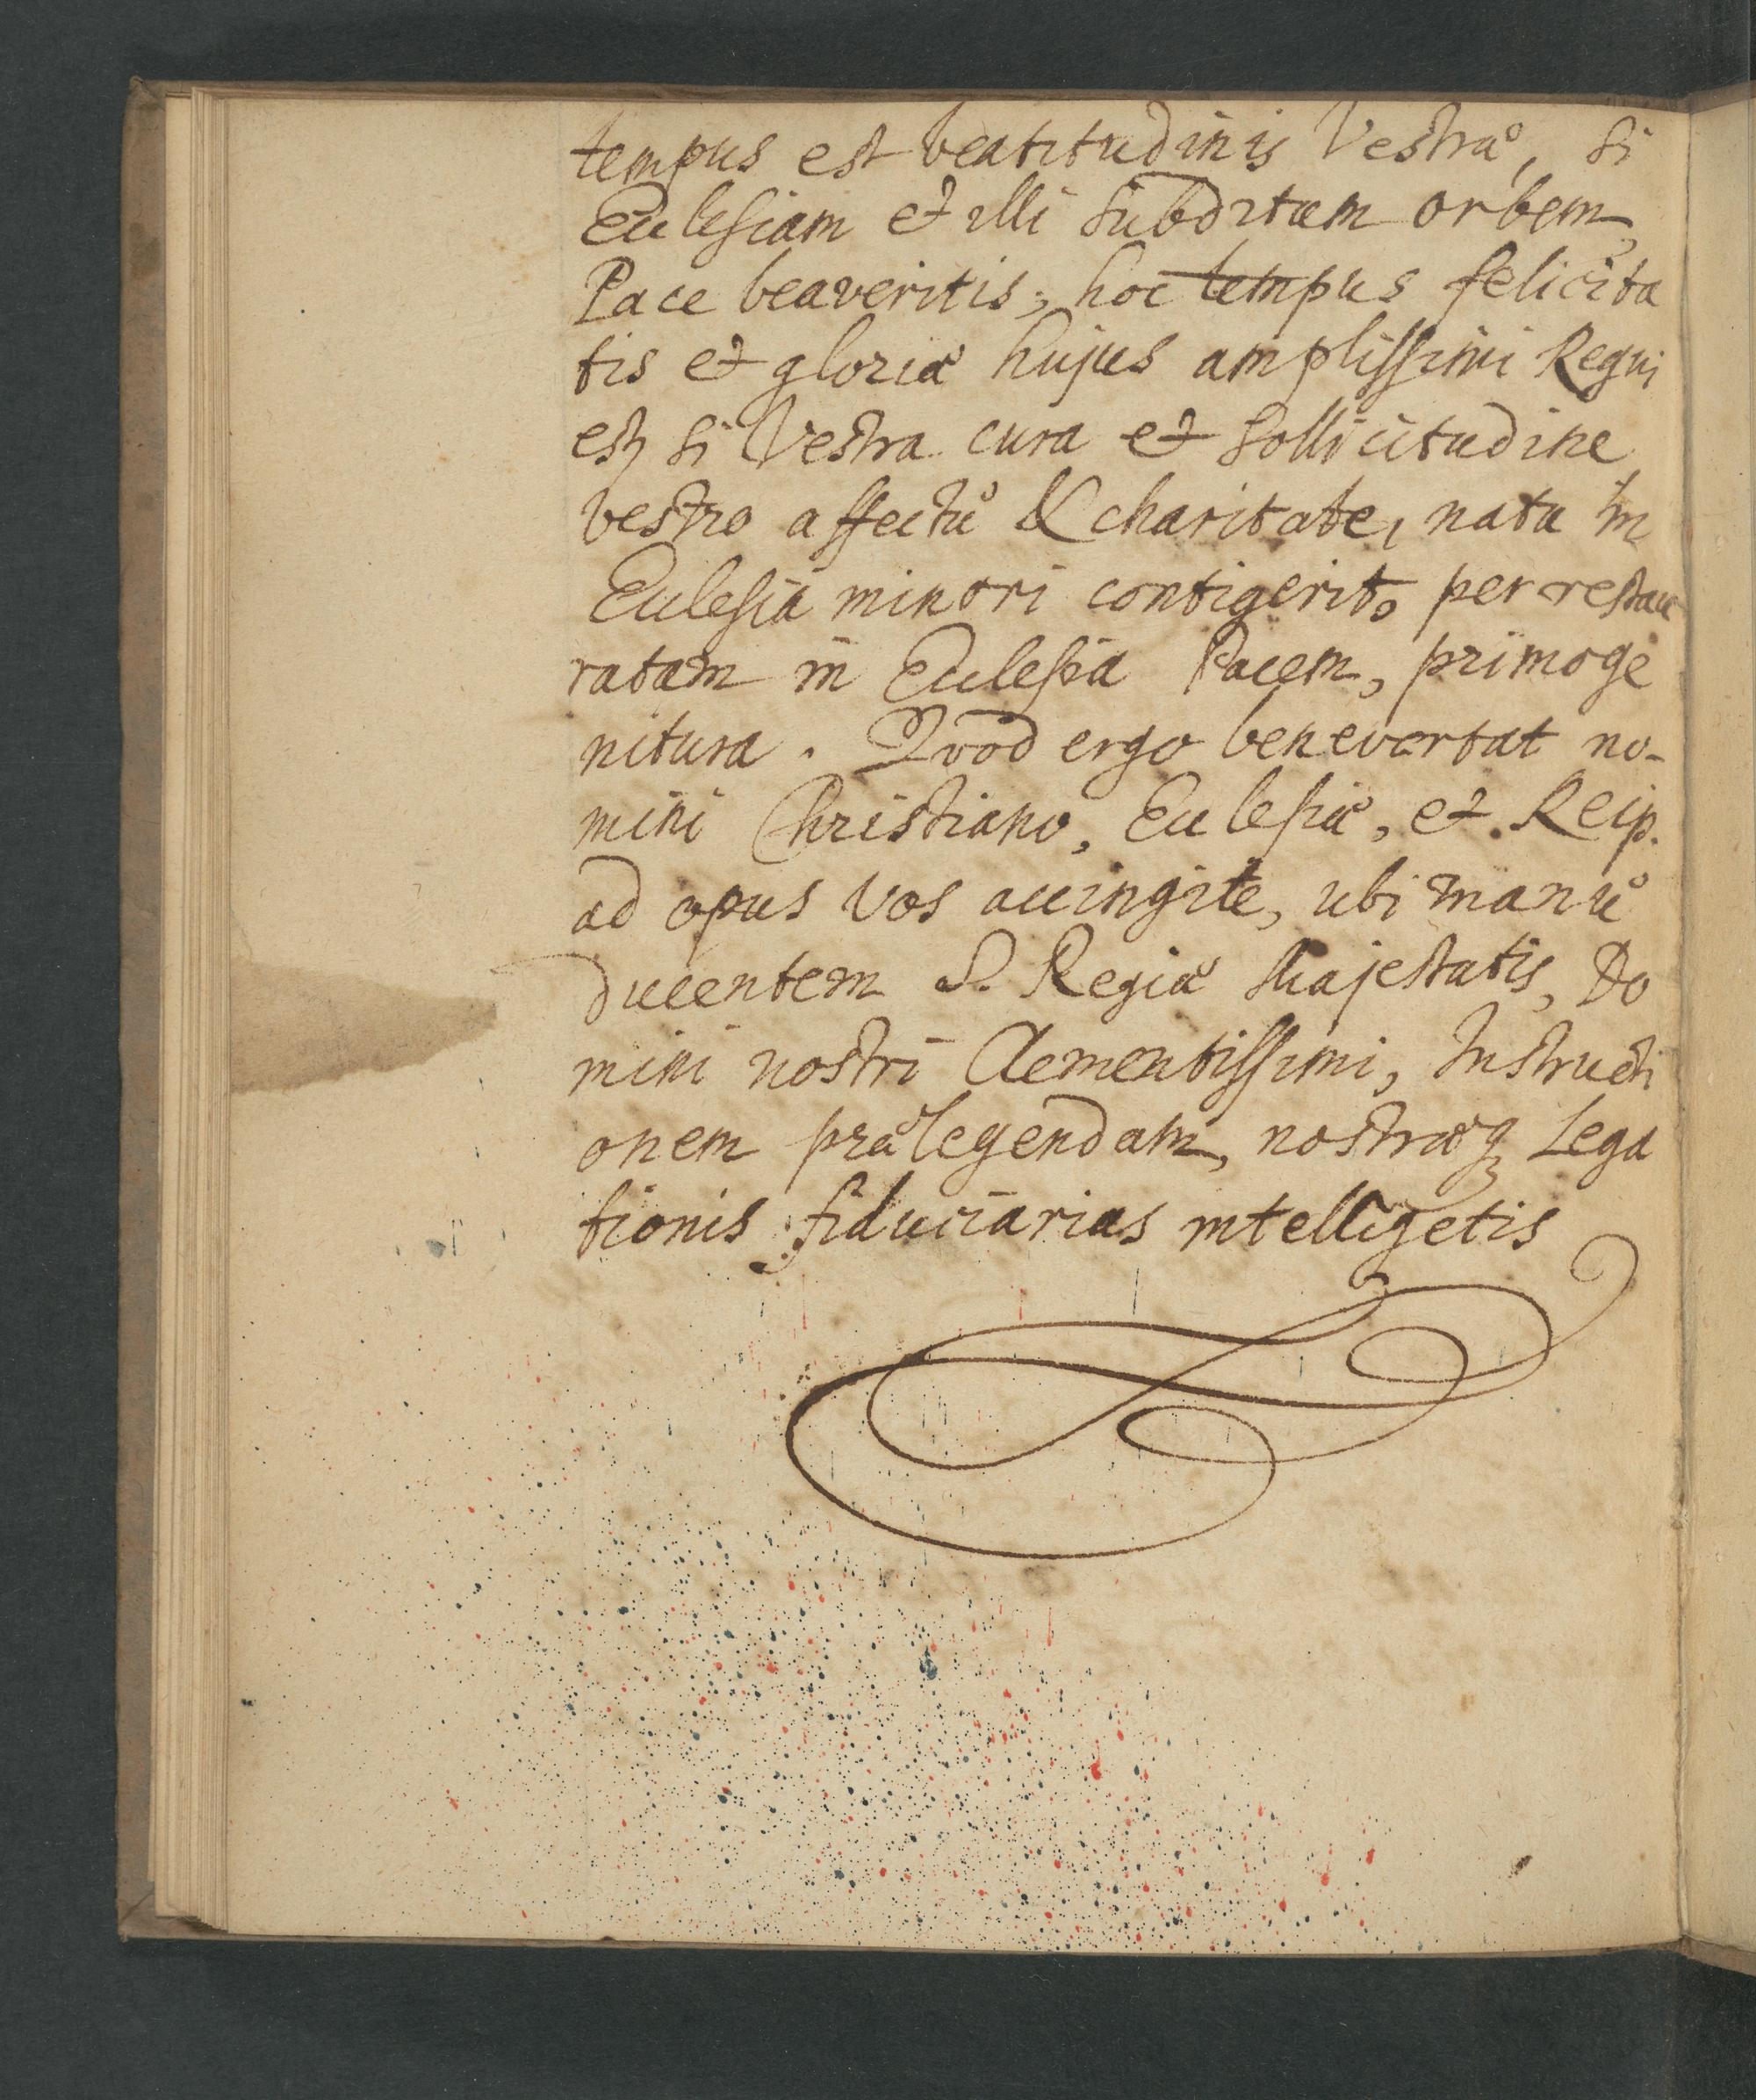 tempus est beatitudinis Vestræ, si
Ecclesiam et illi subditum orbem,
Pace beaveritis; hoc tempus felicita
tis et gloriæ hujus amplissimi Regni
est, si Vestra cura et sollicitudine,
vestro affectu & charitate, nata in
Ecclesia minori contigerit, per restau
ratam in Ecclesia Pacem, primoge
nitura. Quod ergo benevertat no-
mini Christiano, Ecclesiæ, et Reip.
ad opus vos accingite, ubi manu
ducentem S. Regiæ Majestatis, Do
mini nostri Clementissimi, Instructi
onem prælegendam, nostræq Lega
tionis fiduciarias intelligetis